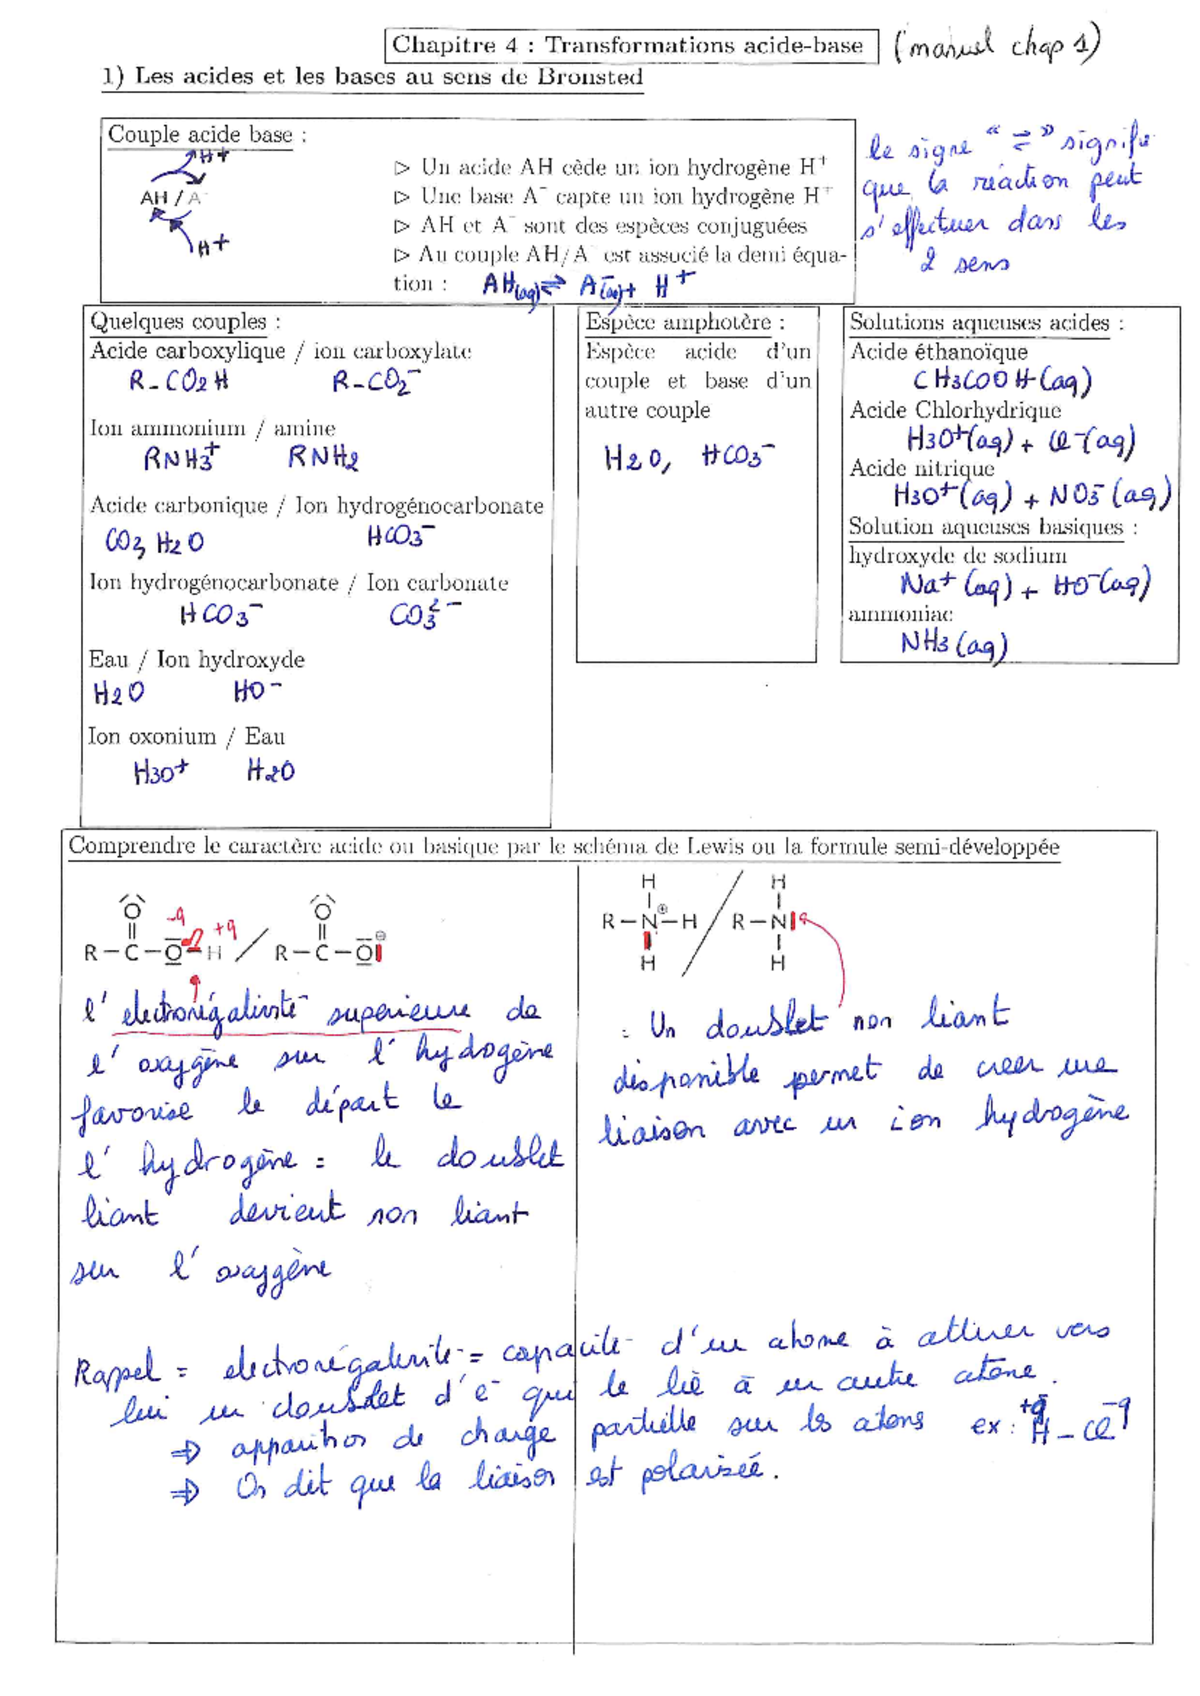 Chapitre 4 : Transformations acide-base (manuel chap 1)
1) Les acides et les bases au sens de Bronsted
Couple acide base :
H+
AH / A-
H+
▷ Un acide AH cède un ion hydrogène H+
▷ Une base A- capte un ion hydrogène H+
▷ AH et A- sont des espèces conjuguées
▷ Au couple AH/A- est associé la demi équa-
tion : AH(aq) ⇌ A-(aq) + H+
le signe "⇌" signifie
que la réaction peut
s'effectuer dans les
2 sens
Quelques couples :
Acide carboxylique / ion carboxylate
R-CO2H R-CO2-
Ion ammonium / amine
RNH3+ RNH2
Acide carbonique / Ion hydrogénocarbonate
CO2, H2O HCO3-
Ion hydrogénocarbonate / Ion carbonate
HCO3- CO3 2-
Eau / Ion hydroxyde
H2O HO-
Ion oxonium / Eau
H3O+ H2O
Espèce amphotère :
Espèce acide d'un
couple et base d'un
autre couple
H2O, HCO3-
Solutions aqueuses acides :
Acide éthanoïque
CH3COOH(aq)
Acide Chlorhydrique
H3O+(aq) + Cl-(aq)
Acide nitrique
H3O+(aq) + NO3-(aq)
Solution aqueuses basiques :
hydroxyde de sodium
Na+(aq) + HO-(aq)
ammoniac
NH3(aq)
Comprendre le caractère acide ou basique par le schéma de Lewis ou la formule semi-développée
O -q +q O
R-C-O-H / R-C-O⊖
l'electronégativité superieure de
l'oxygène sur l'hydrogène
favorise le départ de
l'hydrogène = le doublet
liant devient non liant
sur l'oxygène
H H
R-N⊕-H / R-N q
H H
= Un doublet non liant
disponible permet de creer une
liaison avec un ion hydrogène
Rappel = electronégativité = capacité d'un atome à attirer vers
lui un doublet d'e- qui le lie à un autre atome.
⇒ apparition de charge partielle sur les atomes ex : +q H - Cl -q
⇒ On dit que la liaison est polarisée.